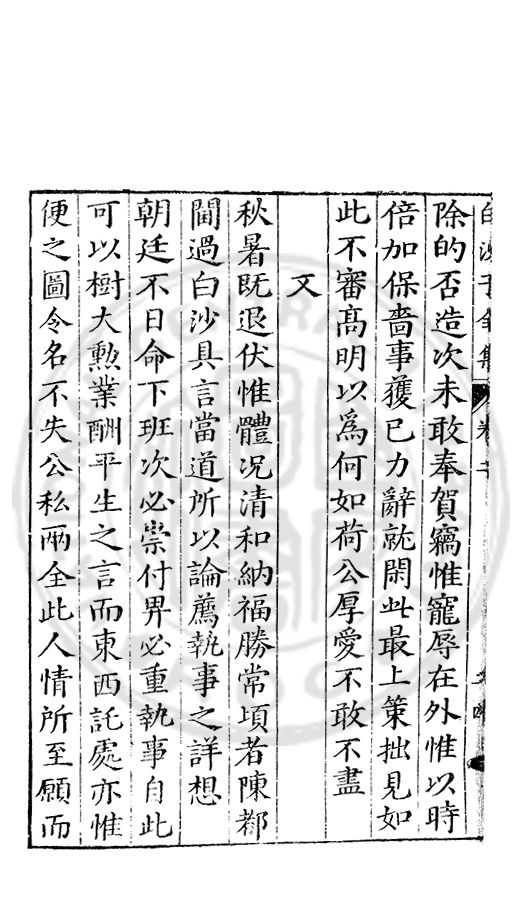 白沙子全集 卷之
除的否造次未敢奉賀竊惟寵辱在外惟以時
倍加保嗇事獲已力辭就閑此最上策拙見如
此不審髙明以為何如荷公厚愛不敢不盡
又
秋暑既退伏惟體况清和納福勝常頃者陳都
閫過白沙具言當道所以論薦執事之詳想
朝廷不日命下班次必崇付畀必重執事自此
可以樹大勲業酬平生之言而東西託處亦惟
便之圖令名不失公私兩全此人情所至願而